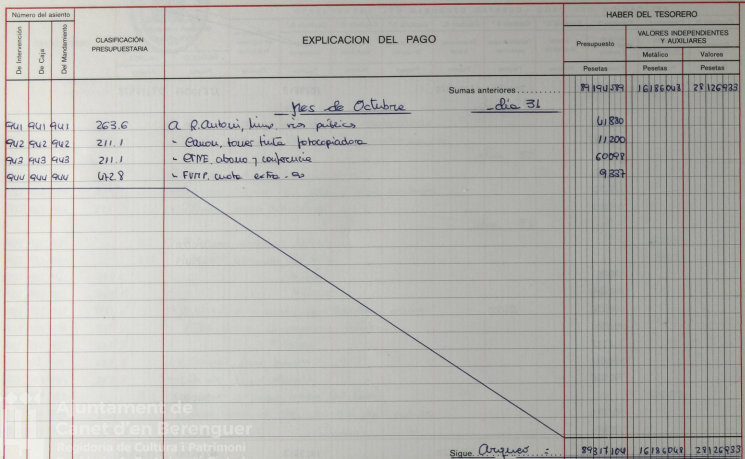 Número del asiento
De Intervención
De Caja
Del Mandamiento
CLASIFICACIÓN
PRESUPUESTARIA
EXPLICACION DEL PAGO
HABER DEL TESORERO
Presupuesto
VALORES INDEPENDIENTES
Y AUXILIARES
Metálico
Valores
Pesetas
Pesetas
Pesetas
Sumas anteriores.......... 89194589 16186048 28126933
Mes de Octubre - día 31
941 941 941 263.6 a R. Antoni, limp. vías públics 41880
942 942 942 211.1 - Canon, toner tinta fotocopiadora 11200
943 943 943 211.1 - CTNE, abono y conferencia 60098
944 944 944 472.8 - FVMP, cuota extra. 9337
Sigue. Arqueo 89317104 16186048 28126933
Ajuntament de
Canet d'en Berenguer
Regidoria de Cultura i Patrimoni